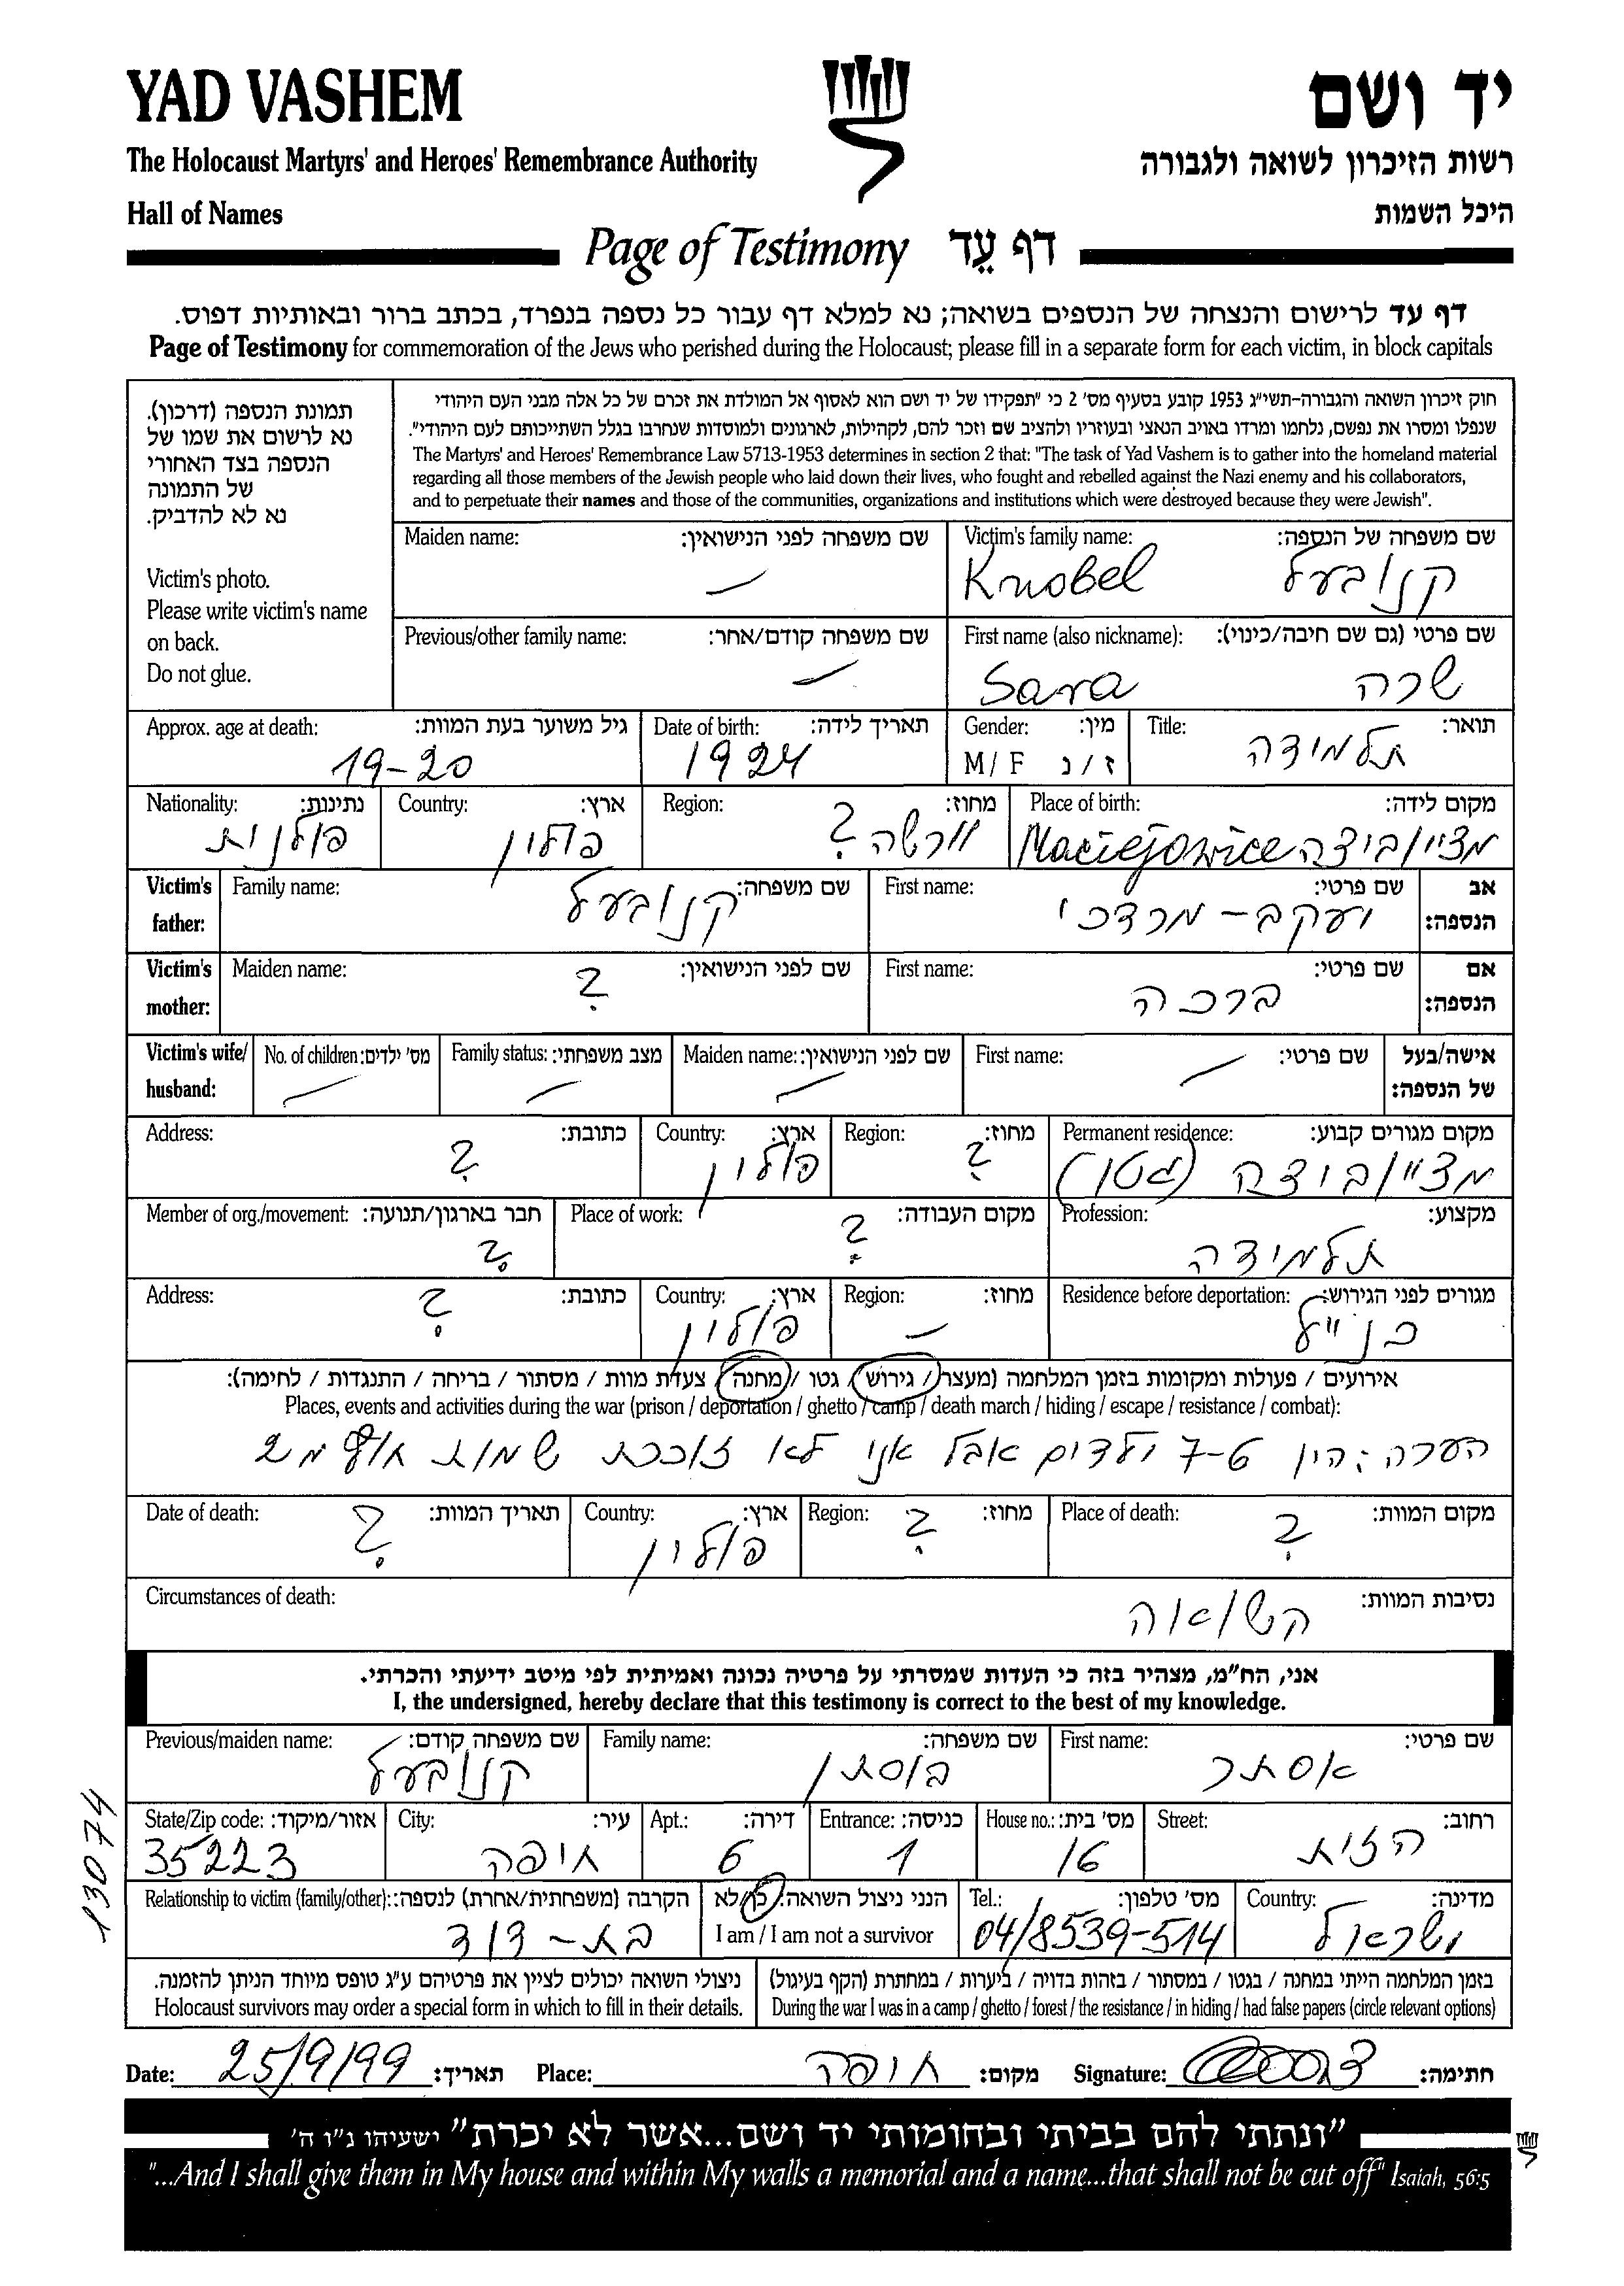 YAD VASHEM
יד ושם
The Holocaust Martyrs' and Heroes' Remembrance Authority
רשות הזיכרון לשואה ולגבורה
Hall of Names
היכל השמות
Page of Testimony דף עֵד
דף עד לרישום והנצחה של הנספים בשואה; נא למלא דף עבור כל נספה בנפרד, בכתב ברור ובאותיות דפוס.
Page of Testimony for commemoration of the Jews who perished during the Holocaust; please fill in a separate form for each victim, in block capitals
תמונת הנספה (דרכון).
נא לרשום את שמו של
הנספה בצד האחורי
של התמונה
נא לא להדביק.
Victim's photo.
Please write victim's name
on back.
Do not glue.
חוק זיכרון השואה והגבורה-תשי״ג 1953 קובע בסעיף מס׳ 2 כי "תפקידו של יד ושם הוא לאסוף אל המולדת את זכרם של כל אלה מבני העם היהודי
שנפלו ומסרו את נפשם, נלחמו ומרדו באויב הנאצי ובעוזריו ולהציב שם וזכר להם, לקהילות, לארגונים ולמוסדות שנחרבו בגלל השתייכותם לעם היהודי".
The Martyrs' and Heroes' Remembrance Law 5713-1953 determines in section 2 that: "The task of Yad Vashem is to gather into the homeland material
regarding all those members of the Jewish people who laid down their lives, who fought and rebelled against the Nazi enemy and his collaborators,
and to perpetuate their names and those of the communities, organizations and institutions which were destroyed because they were Jewish".
Victim's family name: שם משפחה של הנספה:
Knobel קנובעל
Maiden name: שם משפחה לפני הנישואין:
—
First name (also nickname): שם פרטי (גם שם חיבה/כינוי):
Sara שרה
Previous/other family name: שם משפחה קודם/אחר:
—
Title: תואר:
תלמידה
Gender: מין:
M / F ז / נ
Date of birth: תאריך לידה:
1924
Approx. age at death: גיל משוער בעת המוות:
19-20
Place of birth: מקום לידה:
Maciejowice מצייוביצה
Region: מחוז:
וורשה ?
Country: ארץ:
פולין
Nationality: נתינות:
פולנית
Victim's father: אב הנספה:
First name: שם פרטי:
יעקב - מרדכי
Family name: שם משפחה:
קנובעל
Victim's mother: אם הנספה:
First name: שם פרטי:
ברכה
Maiden name: שם לפני הנישואין:
?
Victim's wife/ husband: אישה/בעל של הנספה:
First name: שם פרטי:
—
Maiden name: שם לפני הנישואין:
—
Family status: מצב משפחתי:
—
No. of children: מס׳ ילדים:
—
Permanent residence: מקום מגורים קבוע:
מצייוביצה (גטו)
Region: מחוז:
?
Country: ארץ:
פולין
Address: כתובת:
?
Profession: מקצוע:
תלמידה
Place of work: מקום העבודה:
?
Member of org./movement: חבר בארגון/תנועה:
?
Residence before deportation: מגורים לפני הגירוש:
כנ״ל
Region: מחוז:
—
Country: ארץ:
פולין
Address: כתובת:
?
אירועים / פעולות ומקומות בזמן המלחמה (מעצר / גירוש / גטו / מחנה / צעדת מוות / מסתור / בריחה / התנגדות / לחימה):
Places, events and activities during the war (prison / deportation / ghetto / camp / death march / hiding / escape / resistance / combat):
הערה: היו 7-6 ילדים אבל אני לא זוכרת שמות
Place of death: מקום המוות:
?
Region: מחוז:
?
Country: ארץ:
פולין
Date of death: תאריך המוות:
?
Circumstances of death: נסיבות המוות:
השואה
אני, הח״מ, מצהיר בזה כי העדות שמסרתי על פרטיה נכונה ואמיתית לפי מיטב ידיעתי והכרתי.
I, the undersigned, hereby declare that this testimony is correct to the best of my knowledge.
First name: שם פרטי:
אסתר
Family name: שם משפחה:
בוסתן
Previous/maiden name: שם משפחה קודם:
קנובעל
Street: רחוב:
הזית
House no.: מס׳ בית:
16
Entrance: כניסה:
1
Apt.: דירה:
6
City: עיר:
חיפה
State/Zip code: אזור/מיקוד:
35223
13074
Country: מדינה:
ישראל
Tel.: מס׳ טלפון:
04/8539-514
הנני ניצול השואה: כן/לא
I am / I am not a survivor
Relationship to victim (family/other): הקרבה (משפחתית/אחרת) לנספה:
בת - דוד
בזמן המלחמה הייתי במחנה / בגטו / במסתור / בזהות בדויה / ביערות / במחתרת (הקף בעיגול)
During the war I was in a camp / ghetto / forest / the resistance / in hiding / had false papers (circle relevant options)
ניצולי השואה יכולים לציין את פרטיהם ע״ג טופס מיוחד הניתן להזמנה.
Holocaust survivors may order a special form in which to fill in their details.
Date: 25/9/99 תאריך: Place: חיפה מקום: Signature: חתימה:
"ונתתי להם בביתי ובחומותי יד ושם...אשר לא יכרת" ישעיהו נ״ו ה׳
"...And I shall give them in My house and within My walls a memorial and a name...that shall not be cut off" Isaiah, 56:5